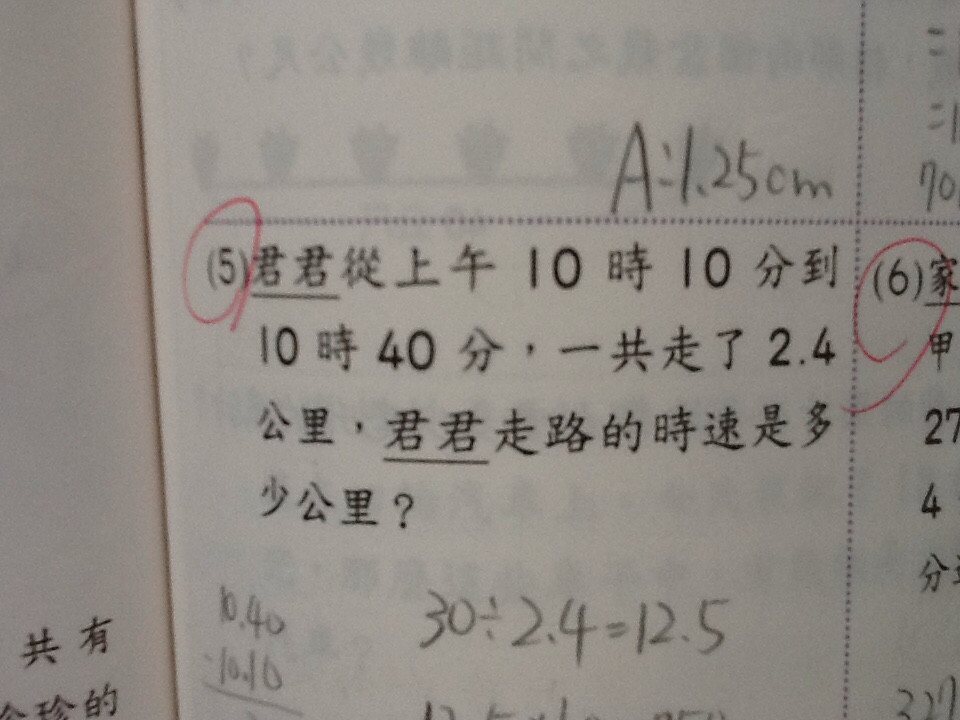 A:1.25cm
(5)君君從上午 10 時 10 分到
10 時 40 分，一共走了 2.4
公里，君君走路的時速是多
少公里？
10.40
-10.10
30÷2.4=12.5
共有
的
(6)家
甲
27
4
分
327
70